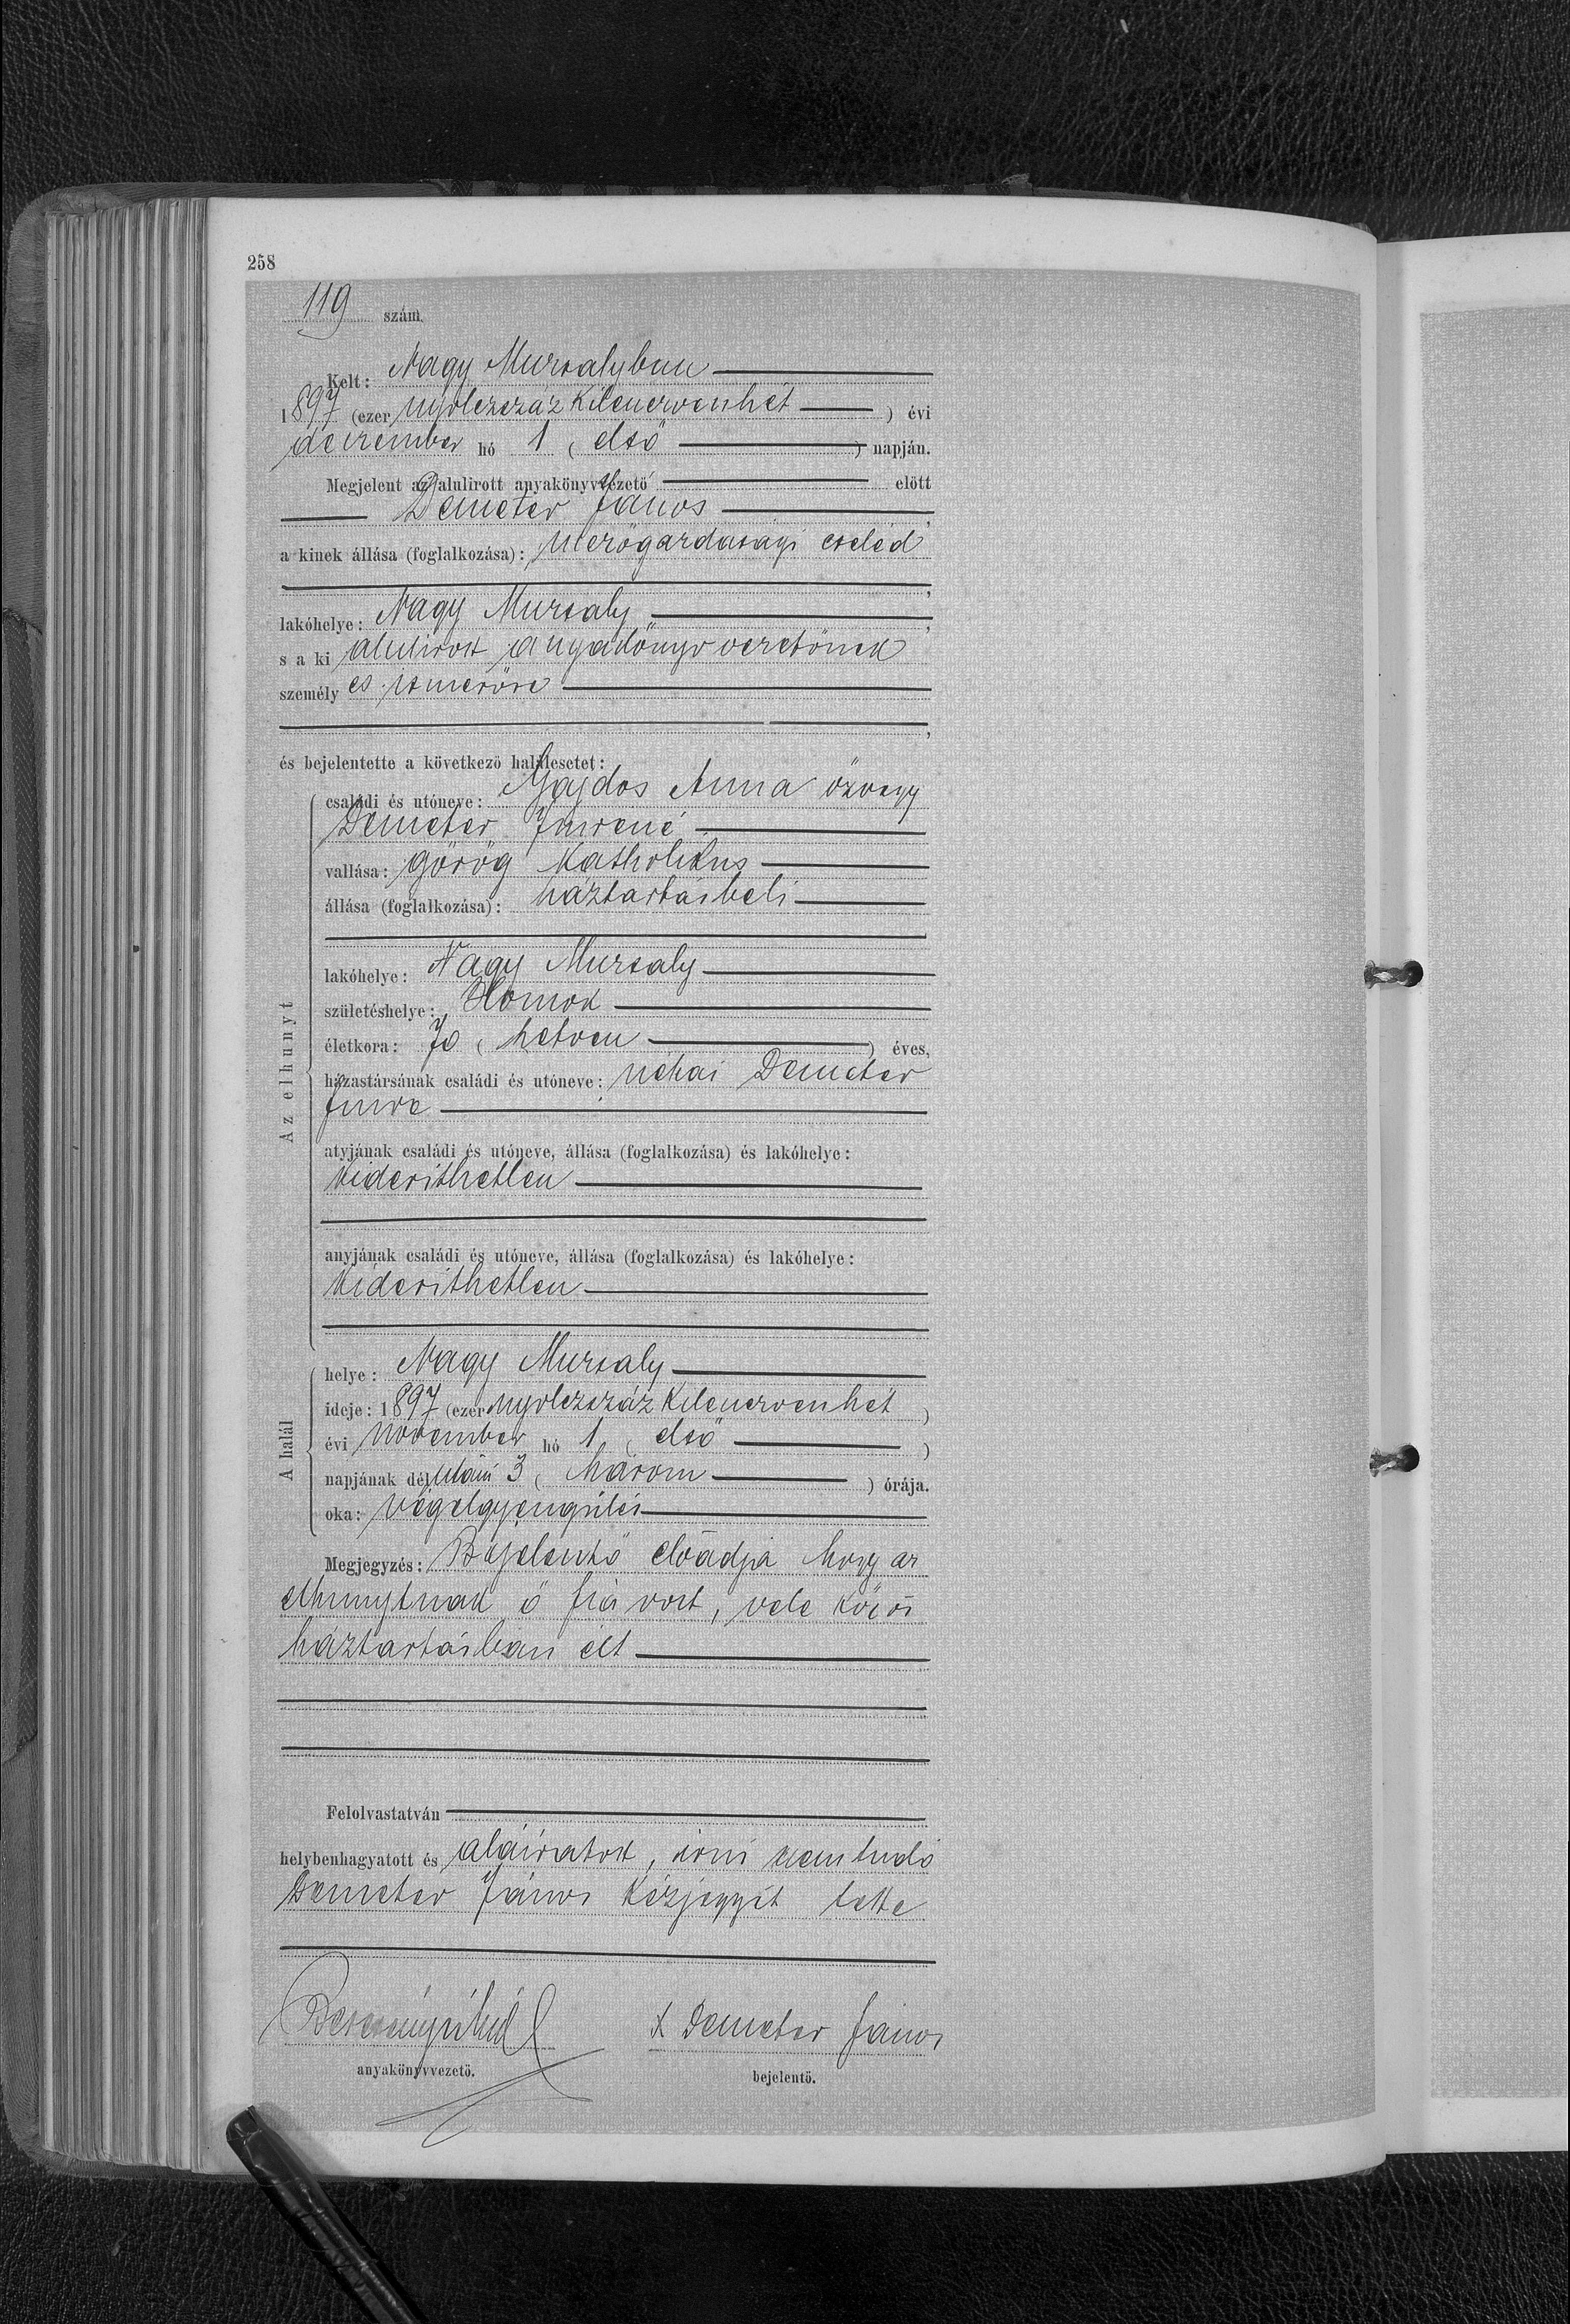 258
119 szám.
Kelt: Nagy Muzsalyban
1897 (ezer nyolczszáz kilenczvenhét ) évi
deczember hó 1 ( első ) napján.
Megjelent az alulirott anyakönyvvezető előtt
Demeter János ,
a kinek állása (foglalkozása): mezőgazdasági cseléd
,
lakóhelye: Nagy Muzsaly ,
s a ki alulirott anyakönyvvezetőnek
személyes ismerőse
,
és bejelentette a következő halálesetet:
Az elhunyt
családi és utóneve: Gajdos Anna özvegy
Demeter Imréné
vallása: görög katholikus
állása (foglalkozása): háztartásbeli
lakóhelye: Nagy Muzsaly
születéshelye: Homok
életkora: 70 ( hetven ) éves,
házastársának családi és utóneve: néhai Demeter
Imre
atyjának családi és utóneve, állása (foglalkozása) és lakóhelye:
kideríthetlen
anyjának családi és utóneve, állása (foglalkozása) és lakóhelye:
kideríthetlen
A halál
helye: Nagy Muzsaly
ideje: 1897 (ezer nyolczszáz kilenczvenhét )
évi november hó 1 ( első )
napjának délutáni 3 ( három ) órája.
oka: végelgyengülés
Megjegyzés: Bejelentő előadja hogy az
elhunytnak ő fia volt, vele közös
háztartásban élt
Felolvastatván
helybenhagyatott és aláíratott, írni nem tudó
Demeter János kézjegyét tette
x Demeter János
anyakönyvvezető.
bejelentő.